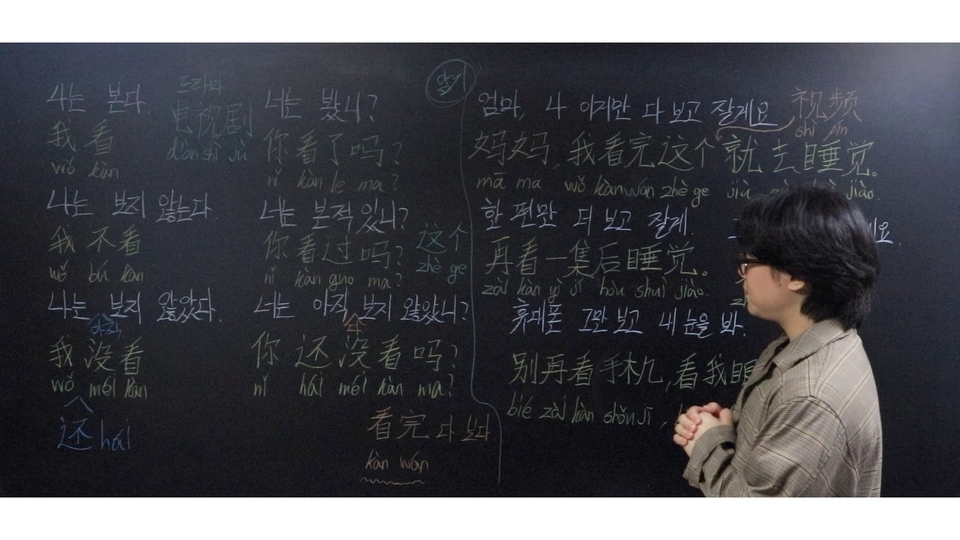 나는 본다.
我 看
wǒ kàn
나는 보지 않는다.
我 不看
wǒ bú kàn
나는 보지 않았다.
아직
我 沒看
wǒ méi kàn
还 hái
드라마
电视剧
diàn shì jù
너는 봤니?
你看了吗?
nǐ kàn le ma?
너는 본적 있니?
你看过吗?
nǐ kàn guo ma?
这个
zhè ge
너는 아직 보지 않았니?
你 还 沒看吗?
nǐ hái méi kàn ma?
看完 다 보다
kàn wán
엄마, 나 이거만 다 보고 잘게요
视频
shì pín
妈妈, 我看完这个 就 去 睡觉。
mā ma wǒ kàn wán zhè ge jiù jiào.
한 편만 더 보고 잘게
再看一集后睡觉。
zài kàn yì jí hòu shuì jiào.
휴대폰 그만 보고 내 눈을 봐.
别再看手机, 看我
bié zài kàn shǒu jī,